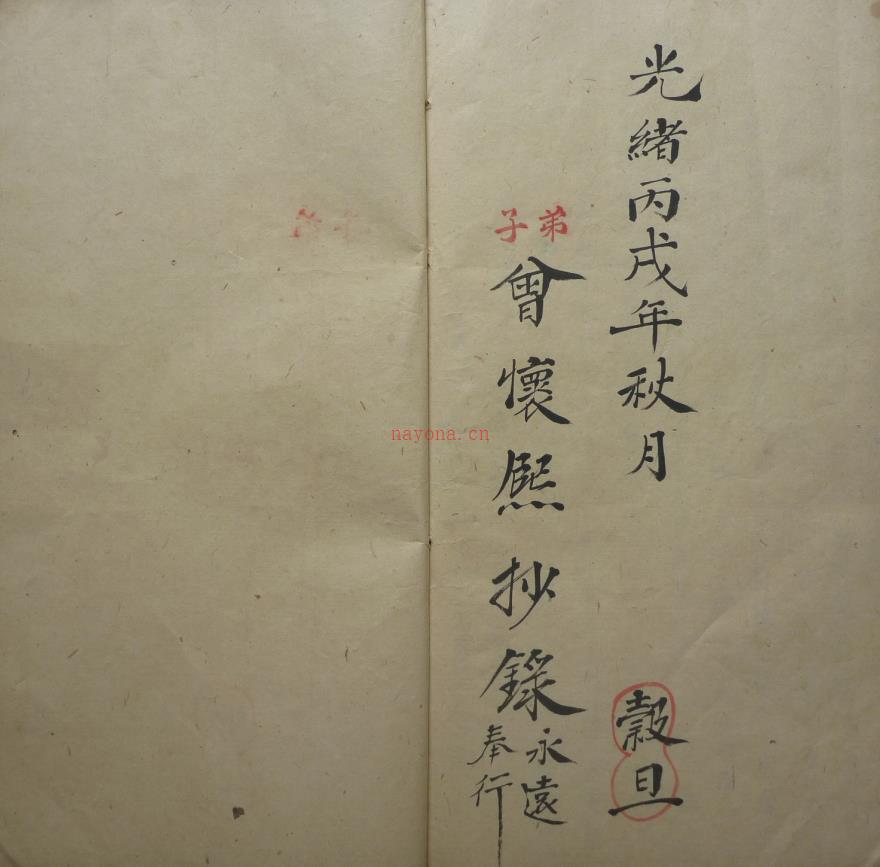 光緒丙戌年秋月 穀旦
弟子曾懷熙抄錄永遠奉行
nayona.cn